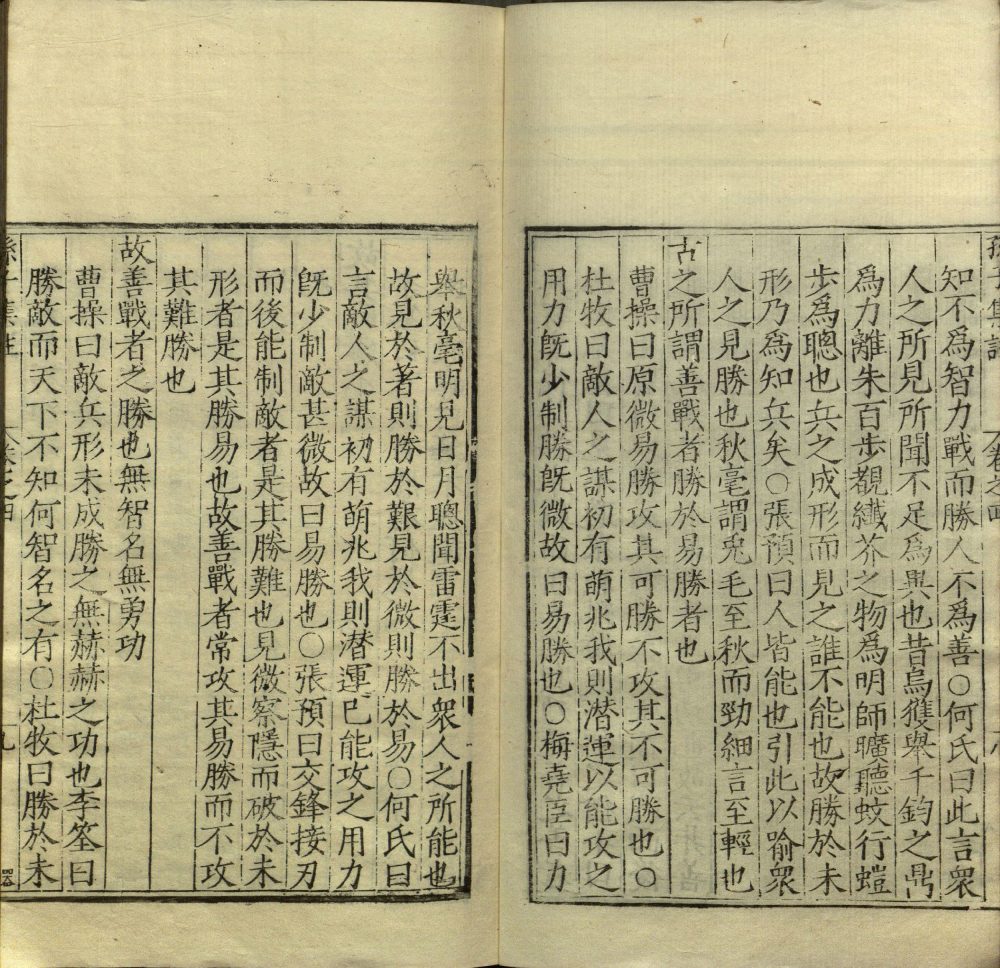 知不爲智力戰而勝人不爲善○何氏曰此言衆
人之所見所聞不足爲異也昔烏獲舉千鈞之鼎
爲力離朱百步覩纎芥之物爲明師曠聽蚊行螘
步爲聰也兵之成形而見之誰不能也故勝於未
形乃爲知兵矣○張預曰人皆能也引此以喻衆
人之見勝也秋毫謂兎毛至秋而勁細言至輕也
古之所謂善戰者勝於易勝者也
曹操曰原微易勝攻其可勝不攻其不可勝也○
杜牧曰敵人之謀初有萌兆我則潜運以能攻之
用力旣少制勝旣微故曰易勝也○梅堯臣曰力
舉秋毫明見日月聰聞雷霆不出衆人之所能也
故見於著則勝於艱見於微則勝於易○何氏曰
言敵人之謀初有萌兆我則潜運已能攻之用力
旣少制敵甚微故曰易勝也○張預曰交鋒接刃
而後能制敵者是其勝難也見微察隱而破於未
形者是其勝易也故善戰者常攻其易勝而不攻
其難勝也
故善戰者之勝也無智名無勇功
曹操曰敵兵形未成勝之無赫赫之功也李筌曰
勝敵而天下不知何智名之有○杜牧曰勝於未